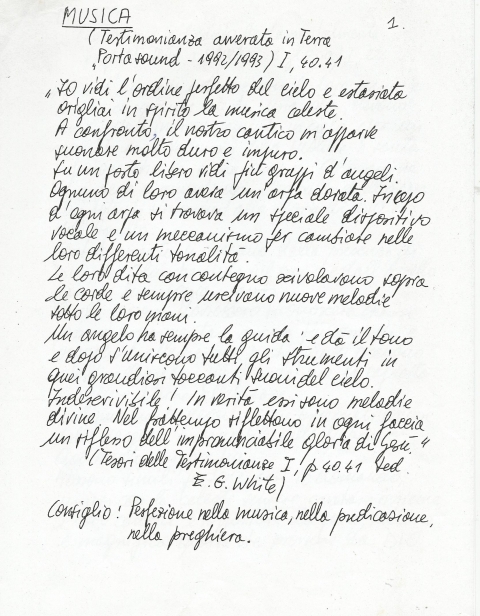 MUSICA 1.
(Testimonianza avverata in Terra
"Portasound - 1992/1993) I, 40.41
"Io vidi l'ordine perfetto del cielo e estasiata
origliai in spirito la musica celeste.
A confronto, il nostro cantico m'apparve
suonare molto duro e impuro.
Su un posto libero vidi più gruppi d'angeli.
Ognuno di loro aveva un'arpa dorata. In capo
d'ogni arpa si trovava un speciale dispositivo
vocale e un meccanismo per cambiare nelle
loro differenti tonalità.
Le loro dita con contegno scivolavano sopra
le corde e sempre uscivano nuove melodie
sotto le loro mani.
Un angelo ha sempre la guida: e dà il tono
e dopo s'uniscono tutti gli strumenti in
quei grandiosi toccanti suoni del cielo.
Indescrivibile! In verità essi sono melodie
divine. Nel frattempo riflettono in ogni faccia
un riflesso dell'impronunciabile gloria di Gesù."
(Tesori delle Testimonianze I, p 40.41 ted.
E. G. White)
Consiglio: Perfezione nella musica, nella predicazione,
nella preghiera.